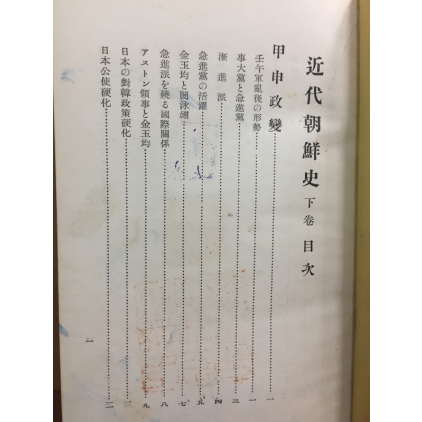 近代朝鮮史 下卷 目次
甲申政變……一
壬午軍亂後の形勢……一
事大黨と急進黨……三
漸進派……四
急進黨の活躍……五
金玉均と閔泳翊……七
急進派を繞る國際關係……八
アストン領事と金玉均……九
日本の對韓政策硬化……
日本公使硬化……